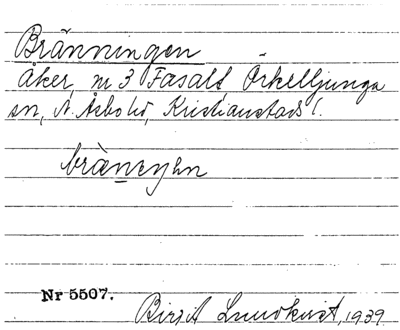 Bränningen
åker, nr 3 Fasalt, Örkelljunga
sn, N. Åsbo hd, Kristianstads l.
Nr 5507.
Birgit Lundkvist, 1939